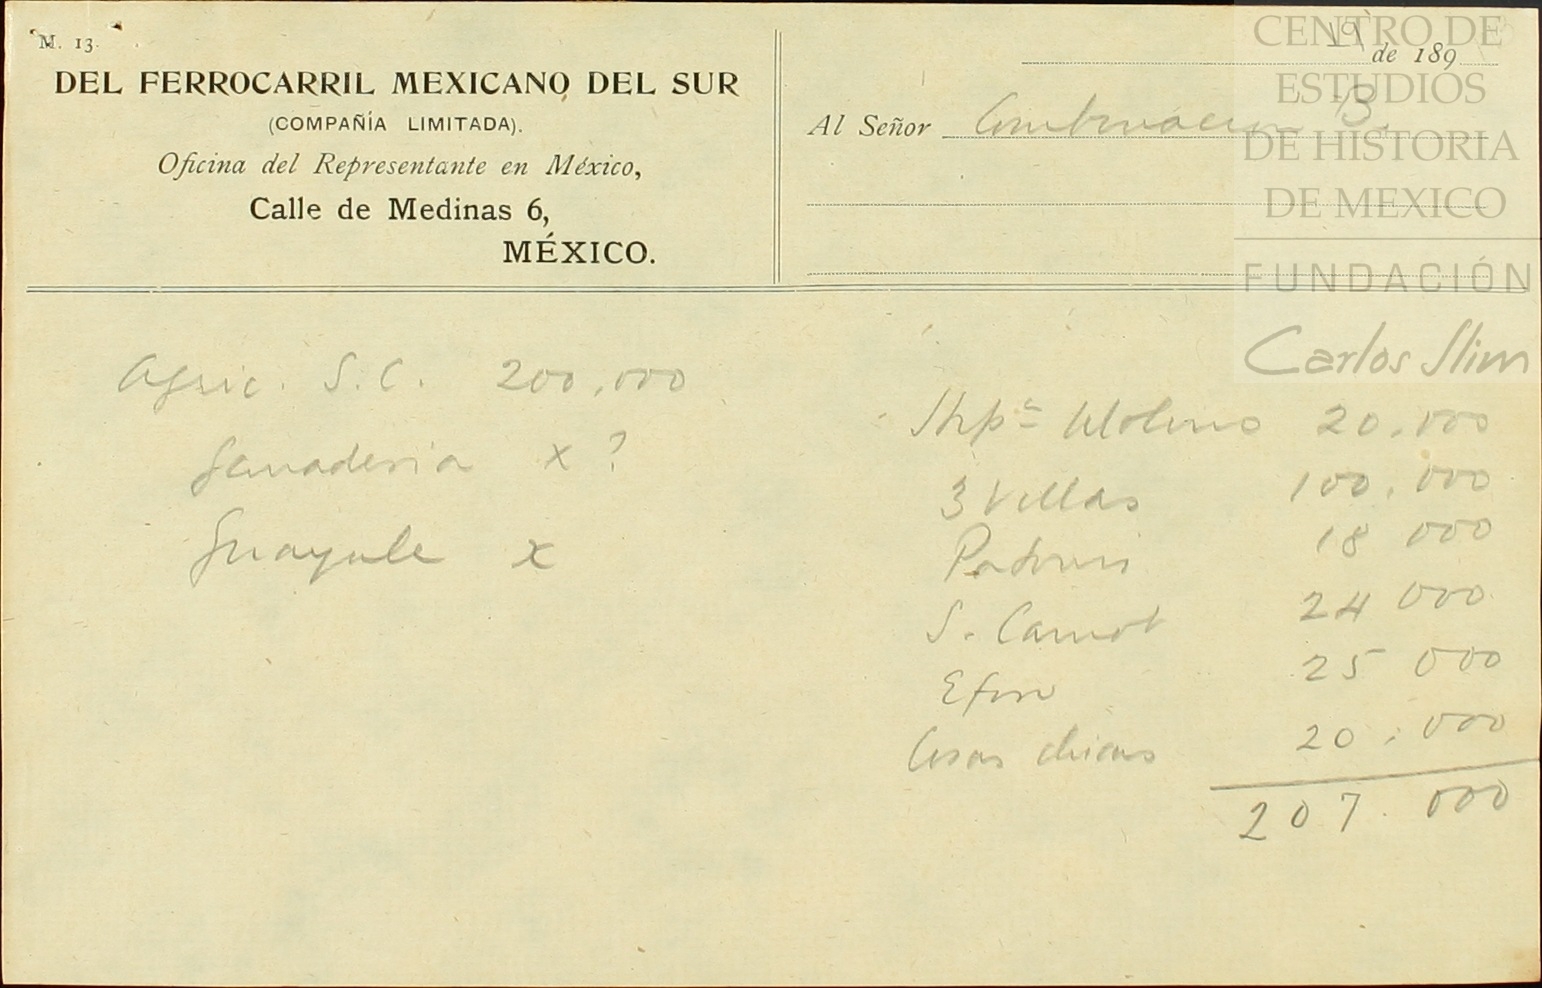 M. 13.
DEL FERROCARRIL MEXICANO DEL SUR
(COMPAÑÍA LIMITADA).
Oficina del Representante en México,
Calle de Medinas 6,
MÉXICO.
19 de 189
Al Señor Combinacion B.
Agric. S. C. 200,000
Ganaderia x ?
Guayule x
Molino 20.000
3 Villas 100.000
18 000
S. Carnot 24 000
25 000
Cosas chicas 20.000
207.000
CENTRO DE
ESTUDIOS
DE HISTORIA
DE MEXICO
FUNDACIÓN
Carlos Slim